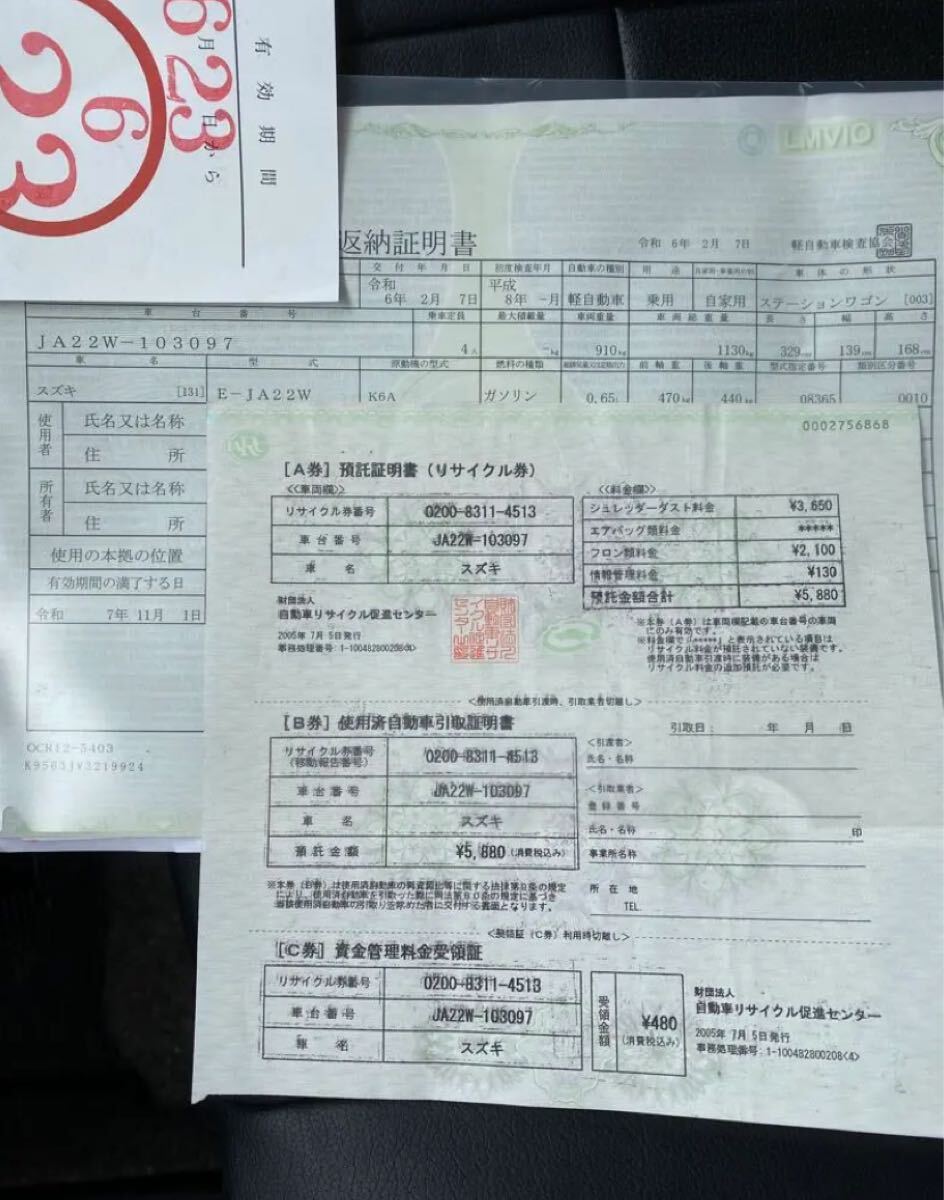 有効期間
6月23日から
6
23
LMVIO
返納証明書
令和 6年 2月 7日
軽自動車検査協会
交付年月日
初度検査年月
自動車の種別
用途
自家用・事業用の別
車体の形状
令和
6年 2月 7日
平成
8年 -月
軽自動車
乗用
自家用
ステーションワゴン [003]
車台番号
乗車定員
最大積載量
車両重量
車両総重量
長さ
幅
高さ
JA22W-103097
4人
-kg
910kg
1130kg
329cm
139cm
168cm
車名
型式
原動機の型式
燃料の種類
前軸重
後軸重
型式指定番号
類別区分番号
スズキ [131]
E-JA22W
K6A
ガソリン
0.65L
470kg
440kg
08365
0010
使用者
氏名又は名称
住所
所有者
氏名又は名称
住所
使用の本拠の位置
有効期間の満了する日
令和 7年 11月 1日
OCR12-5403
K9563JV3219924
0002756868
[A券] 預託証明書(リサイクル券)
<<車両欄>>
リサイクル券番号 0200-8311-4513
車台番号 JA22W-103097
車名 スズキ
<<料金欄>>
シュレッダーダスト料金 ¥3,650
エアバッグ類料金 *****
フロン類料金 ¥2,100
情報管理料金 ¥130
預託金額合計 ¥5,880
財団法人
自動車リサイクル促進センター
2005年 7月 5日発行
事務処理番号:1-100482800208<3>
※本券(A券)は車両欄記載の車台番号の車両
にのみ有効です。
※料金欄で「*****」と表示されている項目は
リサイクル料金が預託されていない装備です。
使用済自動車引渡時に装備がある場合は
リサイクル料金の追加預託が必要です。
<使用済自動車引渡時、引取業者切離し>
[B券] 使用済自動車引取証明書
引取日: 年 月 日
リサイクル券番号
(移動報告番号)
0200-8311-4513
車台番号 JA22W-103097
車名 スズキ
預託金額 ¥5,880 (消費税込み)
<引渡者>
氏名・名称
<引取業者>
登録番号
氏名・名称 印
事業所名称
所在地
TEL.
※本券(B券)は使用済自動車の再資源化等に関する法律第8条の規定
により、使用済自動車を引取った際に同法第80条の規定に基づき
当該使用済自動車の引取りを求めた者に交付する書面となります。
<受領証(C券)利用時切離し>
[C券] 資金管理料金受領証
リサイクル券番号 0200-8311-4513
車台番号 JA22W-103097
車名 スズキ
受領金額
¥480
(消費税込み)
財団法人
自動車リサイクル促進センター
2005年 7月 5日発行
事務処理番号:1-100482800208<4>